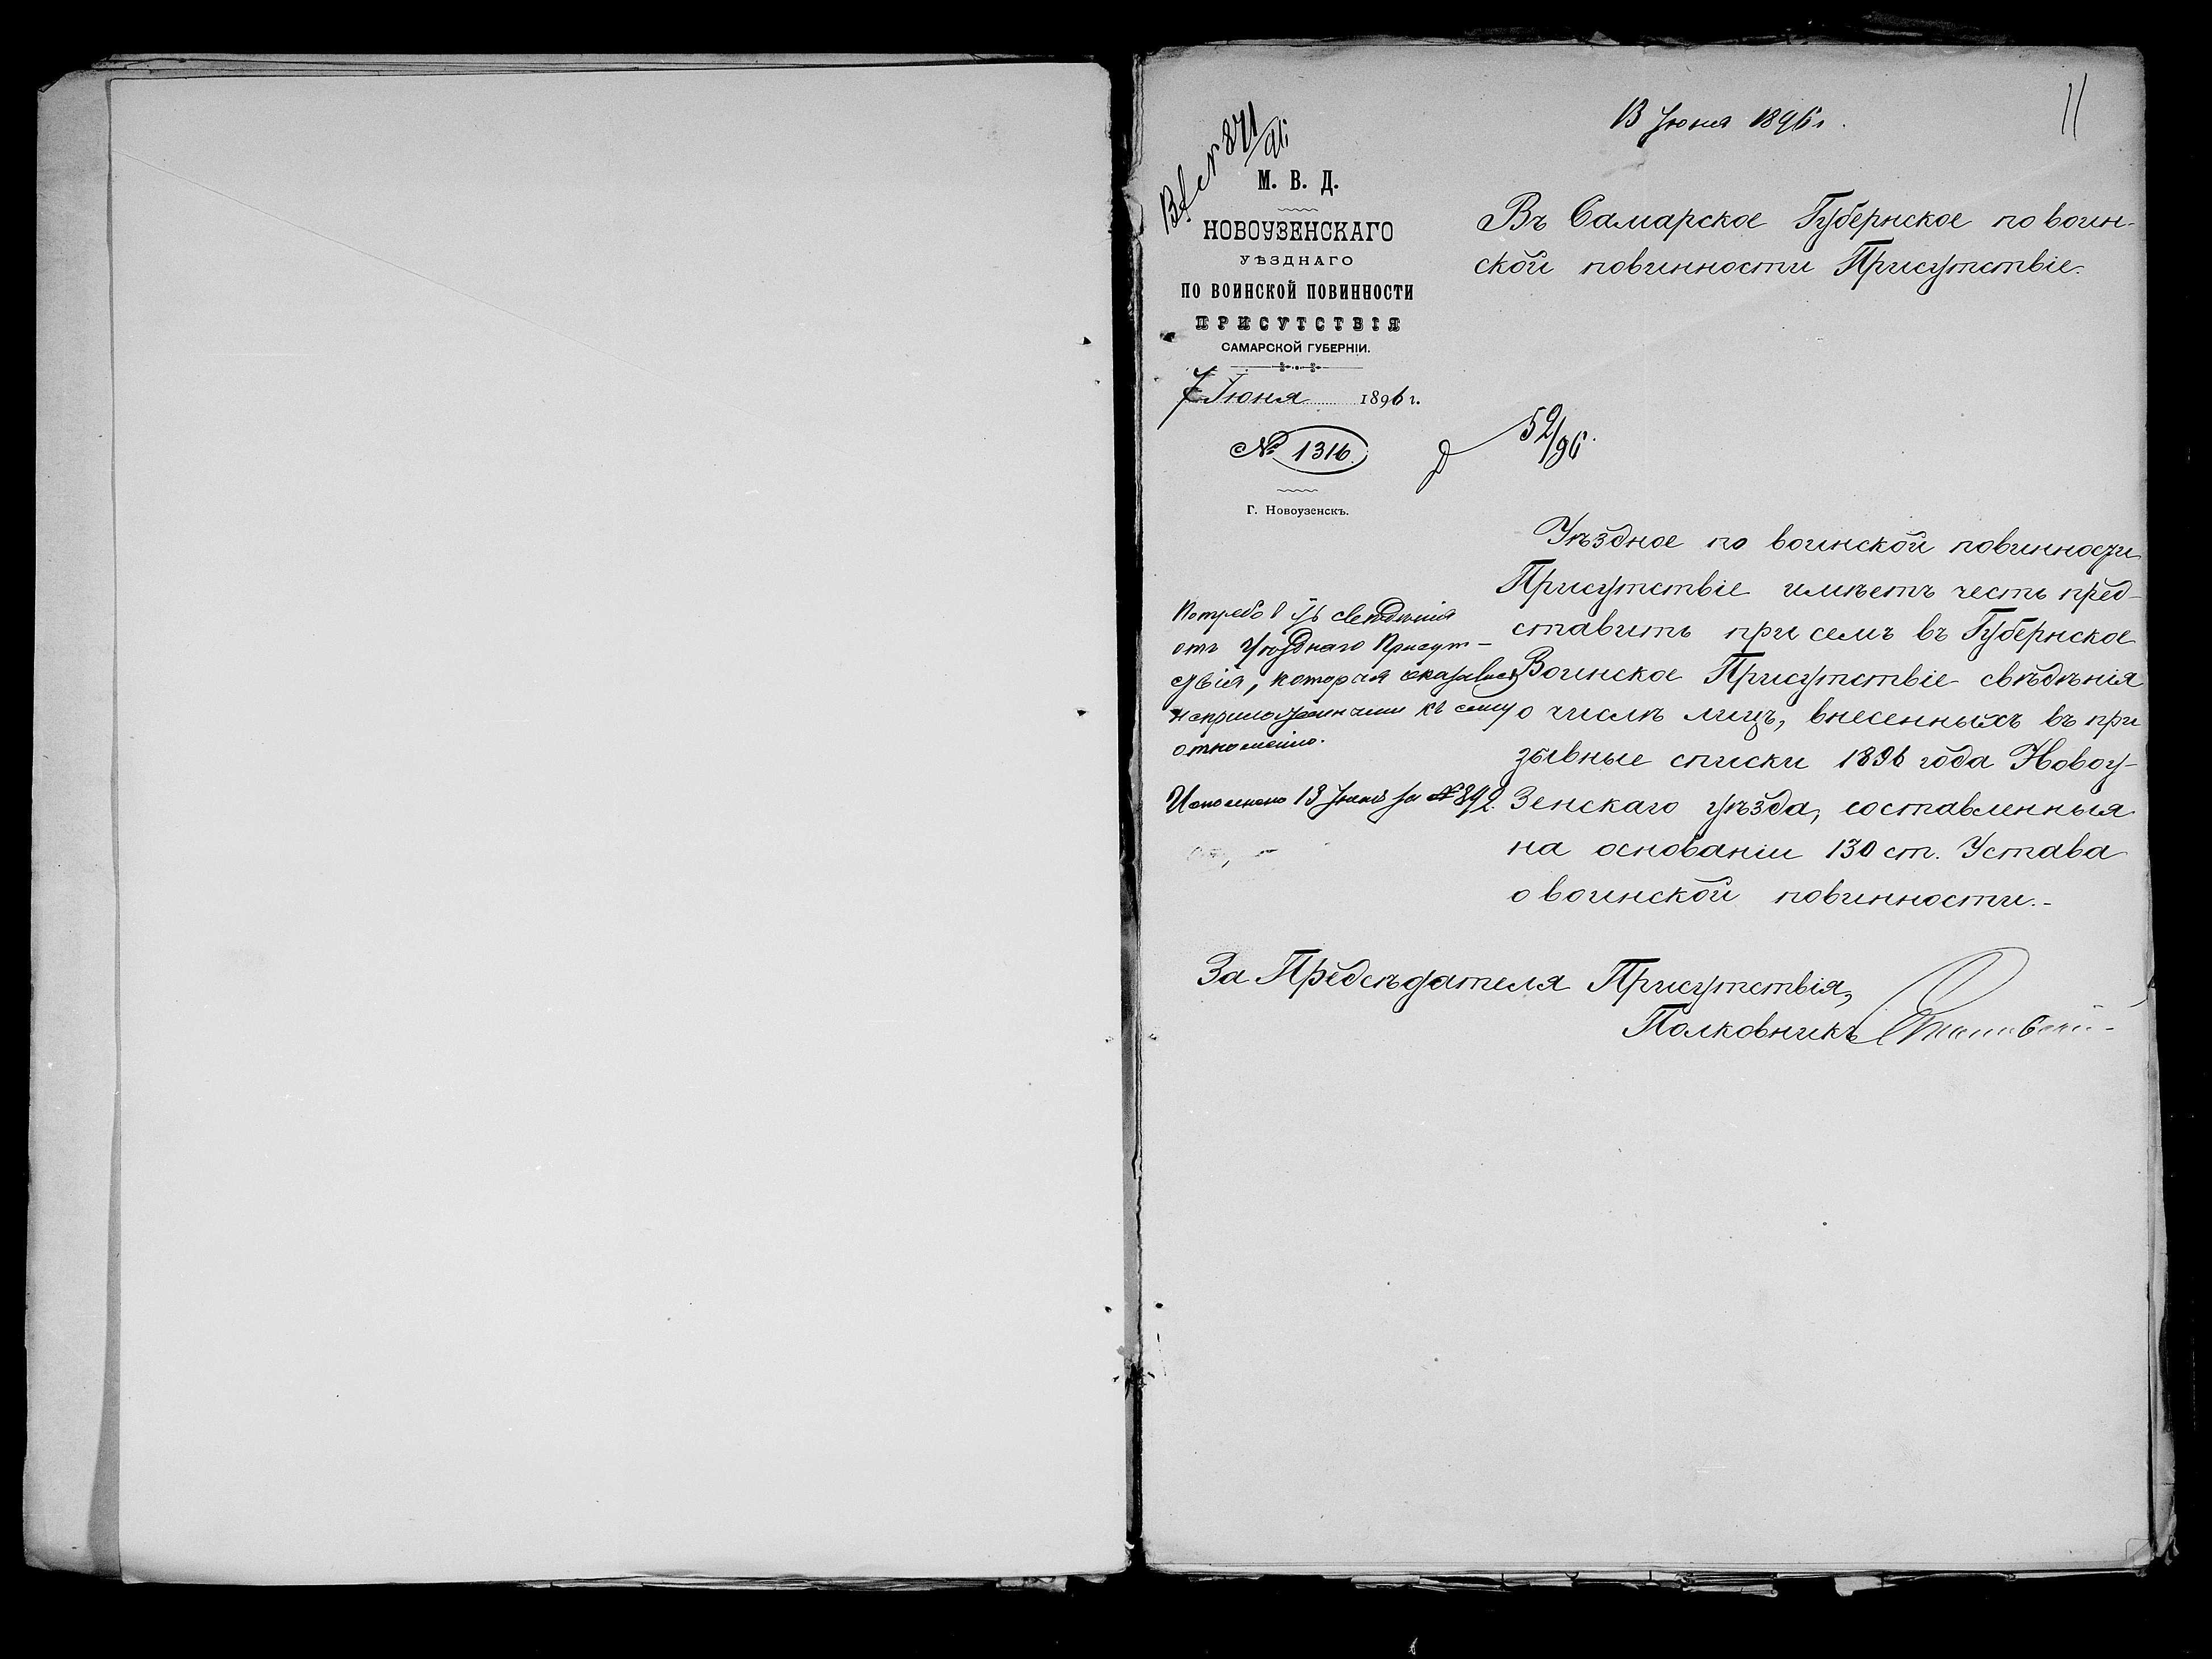 13 Июня 1896 г.
11
Вх. № 871/96
М. В. Д.
НОВОУЗЕНСКАГО
УѢЗДНАГО
ПО ВОИНСКОЙ ПОВИННОСТИ
ПРИСУТСТВІЯ
САМАРСКОЙ ГУБЕРНІИ.
7 Іюня 1896 г.
№ 1316.
Г. Новоузенскъ.
Въ Самарское Губернское по воин-
ской повинности Присутствіе.
Уѣздное по воинской повинности
Присутствіе имѣетъ честь пред-
ставить при семъ въ Губернское
Воинское Присутствіе свѣдѣнія
о числѣ лицъ, внесенныхъ въ при
зывные списки 1896 года Новоу-
зенскаго уѣзда, составленныя
на основаніи 130 ст. Устава
о воинской повинности.-
свѣдѣнія
отъ Уѣзднаго Присут-
ствія, которыя оказались
къ сему
отношенію.
Исполнено 13 Іюня за № 892.
За Предсѣдателя Присутствія,
Полковникъ